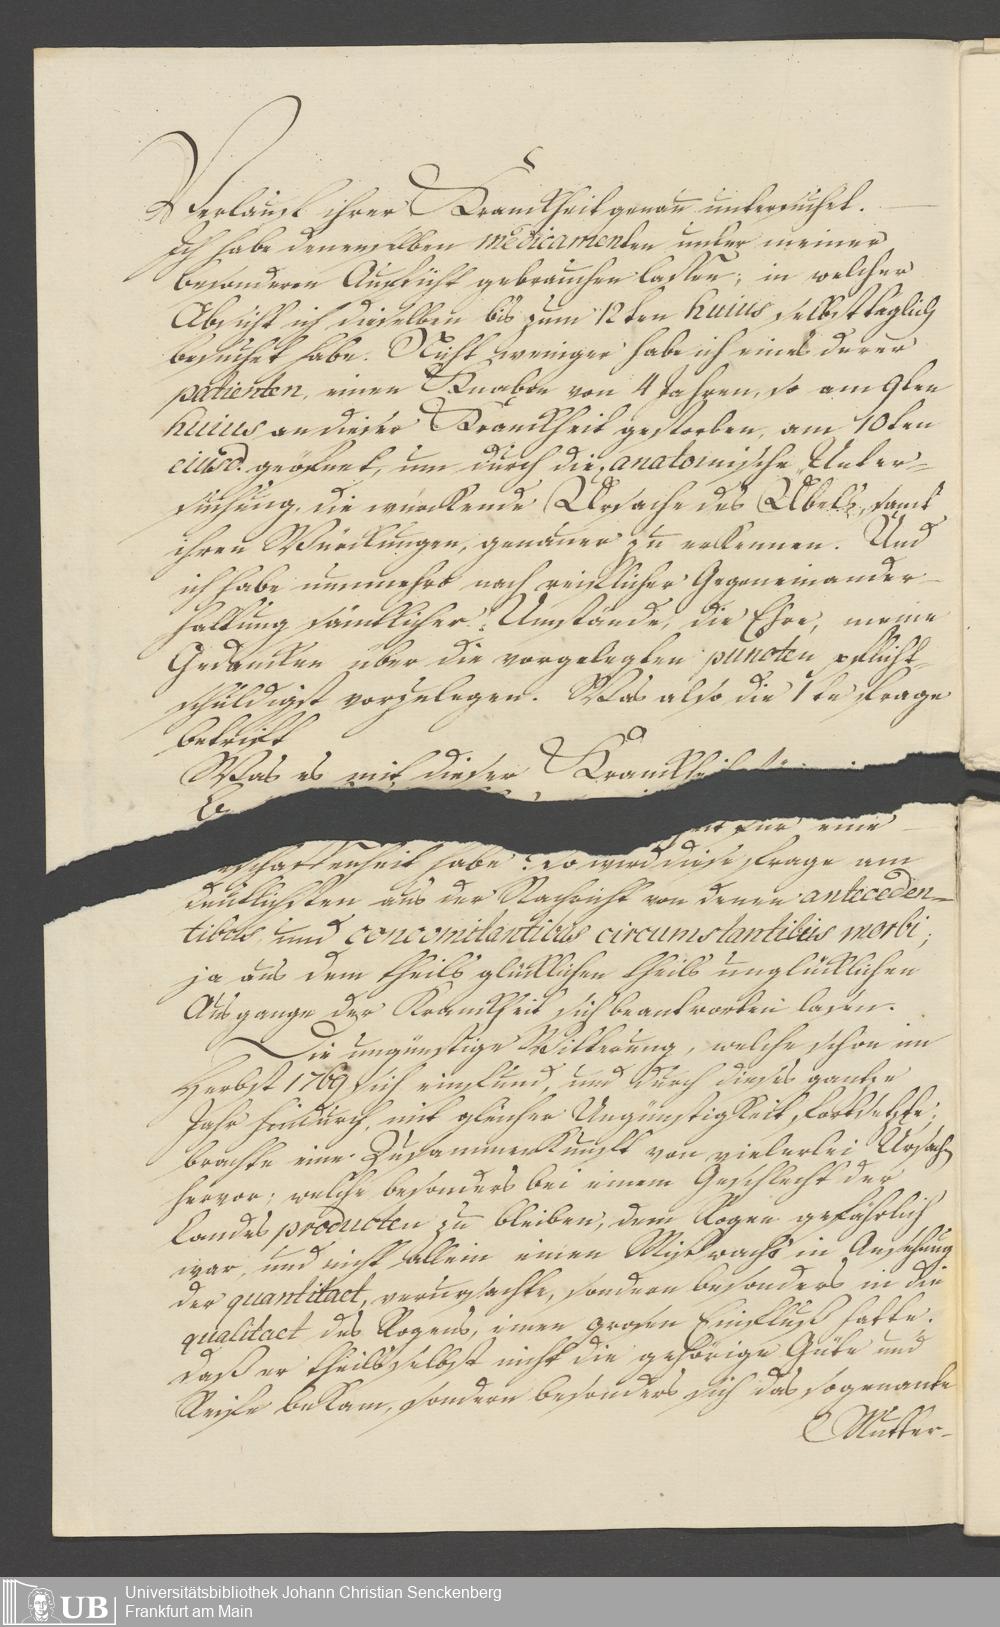 Verlauf ihrer Kranckheit genau untersuchet.
Ich habe denenselben medicamenten unter meiner
besonderen Aufsicht gebrauchen lassen; in welcher
Absicht ich dieselben bis zum 12ten huius selbst täglich
besuchet habe. Nicht weniger habe ich eines derer
patienten, einen Knaben von 4 Jahren, so am 9ten
huius an dieser Kranckheit gestorben, am 10ten
eiusd. geöfnet, um durch die anatomische Unter-
suchung, die würckende Ursache des Übels, samt
ihren Würckungen, genauer zu erkennen. Und
ich habe nunmehro nach reiflicher Gegeneinander-
haltung sämtlicher Umstände, die Ehre, meine
Gedancken über die vorgelegten puncten pflicht-
schuldigst vorzulegen. Was also die 1te Frage
betrift
Was es mit dieser Kranckheit
für eine
schaffenheit habe? so wird diese Frage am
deutlichsten aus der Nachricht von denen anteceden-
tibus und concomitantibus circumstantibus morbi;
ja aus dem theils glücklichen theils unglücklichen
Ausgange der Kranckheit sich beantworten lasen.
Die ungünstige Witterung, welche schon im
Herbst 1769 sich einfund, und durch dieses gantze
Jahr hindurch, mit gleicher Ungünstigkeit fortsetzte;
brachte eine Zusammenkunft von vielerlei Ursach
hervor; welche besonders bei einem Geschlecht der
Landes producten zu bleiben, dem Rogen gefährlich
war, und nicht allein einen Miswachs in Ansehung
der quantitaet, verursachte, sondern besonders in die
qualitaet des Rogens, einen grosen Einfluß hatte.
daß er theils selbst nicht die gehörige Güte und
Reife bekam, sondern besonders sich das sogenante
Mutter-
Universitätsbibliothek Johann Christian Senckenberg
Frankfurt am Main
UB